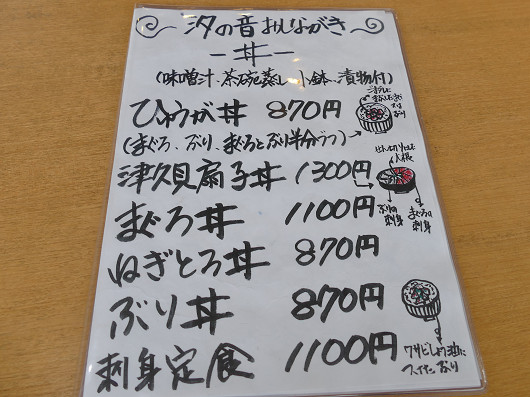 汐の音おしながき
ー丼ー
(味噌汁、茶碗蒸し、小鉢、漬物付)
ひゅうが丼 870円
(まぐろ、ぶり、まぐろとぶり半分づつ)
津久見扇子丼 1300円
大根
ぶりの刺身
まぐろの刺身
まぐろ丼 1100円
ねぎとろ丼 870円
ぶり丼 870円
ワサビしょう油に
つけた ぶり
刺身定食 1100円